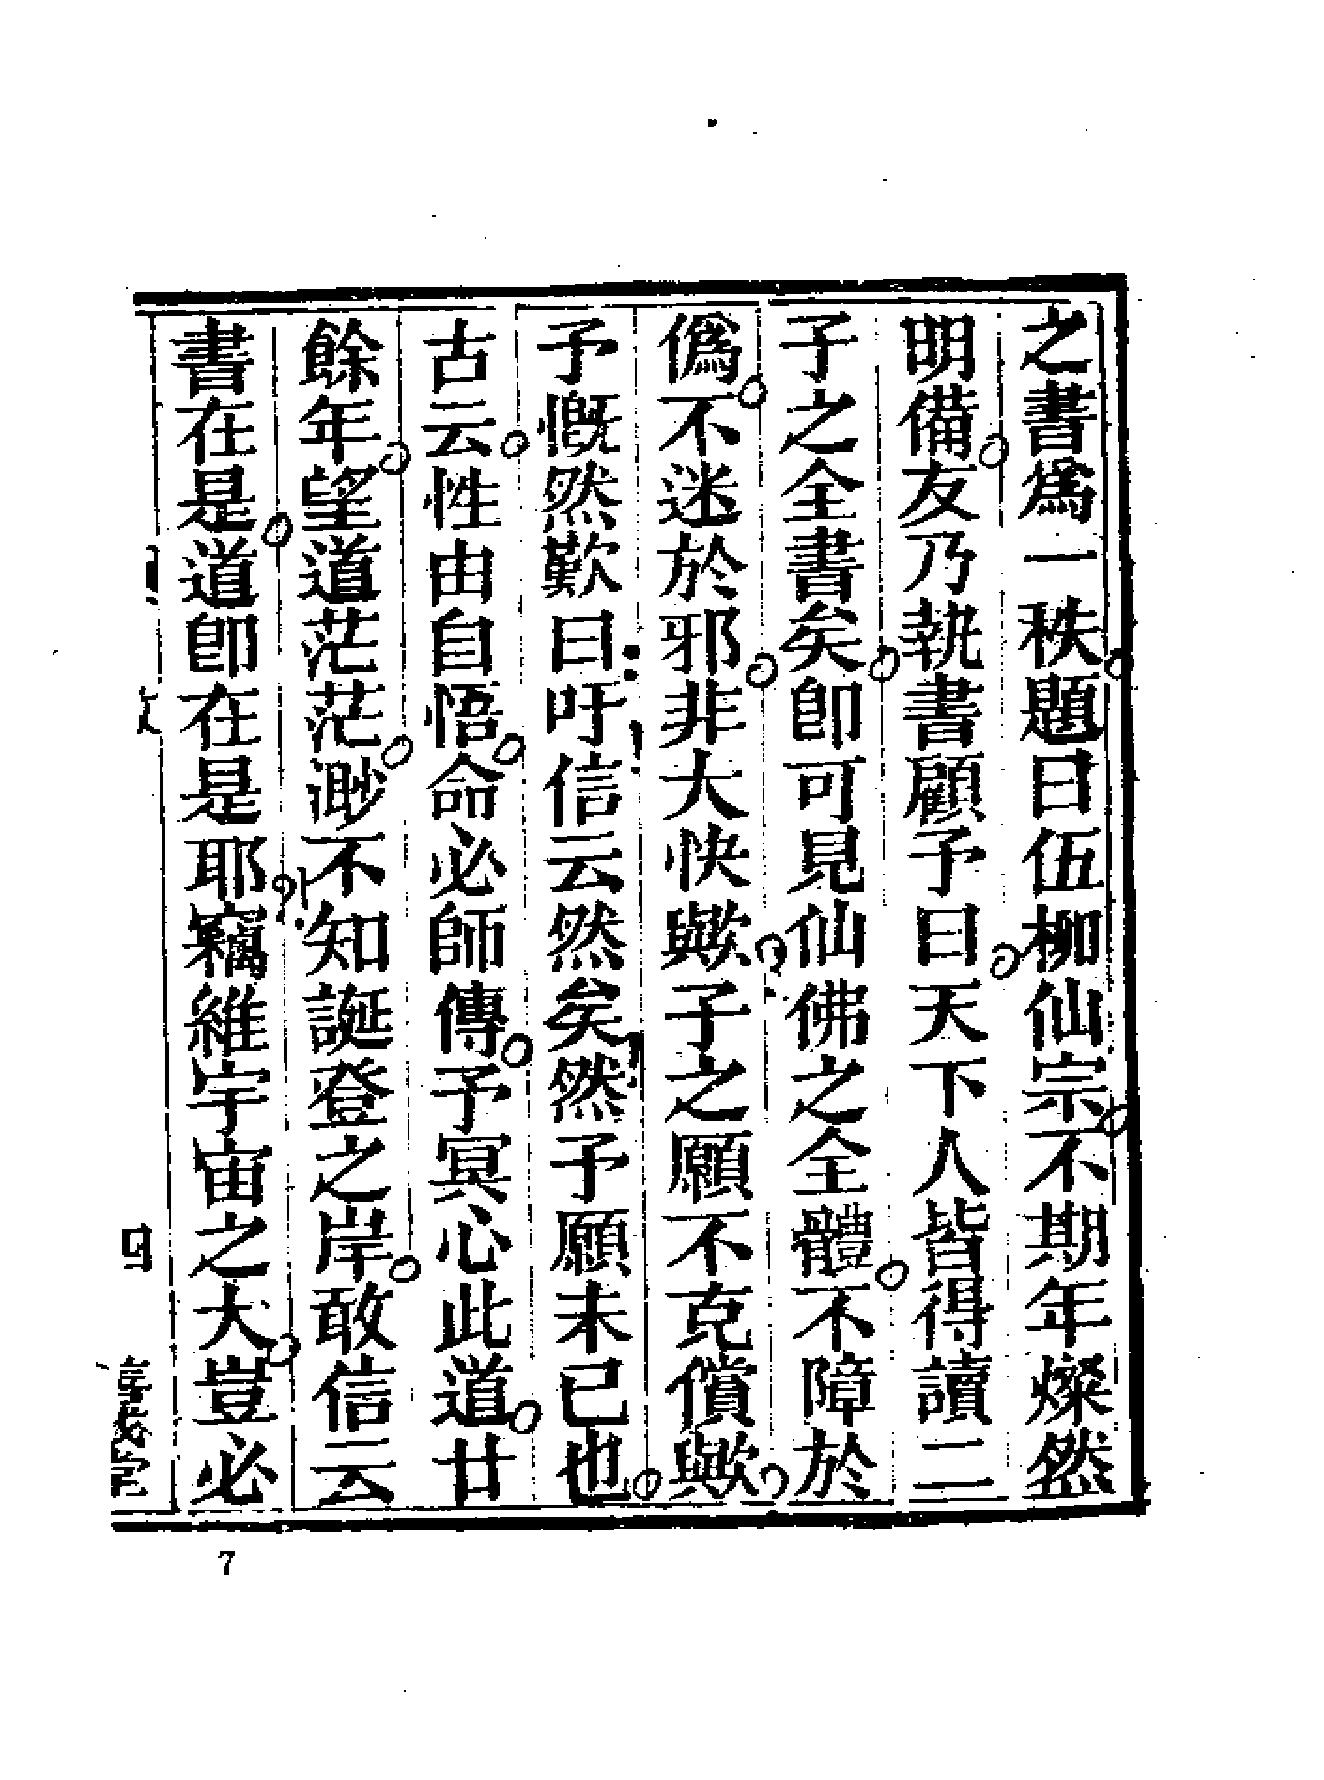 之書爲一秩題曰伍柳仙宗不期年燦然
明備友乃執書顧予曰天下人皆得讀二
子之全書矣卽可見仙佛之全體不障於
僞不迷於邪非大快歟子之願不克償歟
予慨然歎曰吁信云然矣然予願未已也
古云性由自悟命必師傳予冥心此道廿
餘年望道茫茫渺不知誕登之岸敢信云
書在是道卽在是耶竊維宇宙之大豈必
四
7